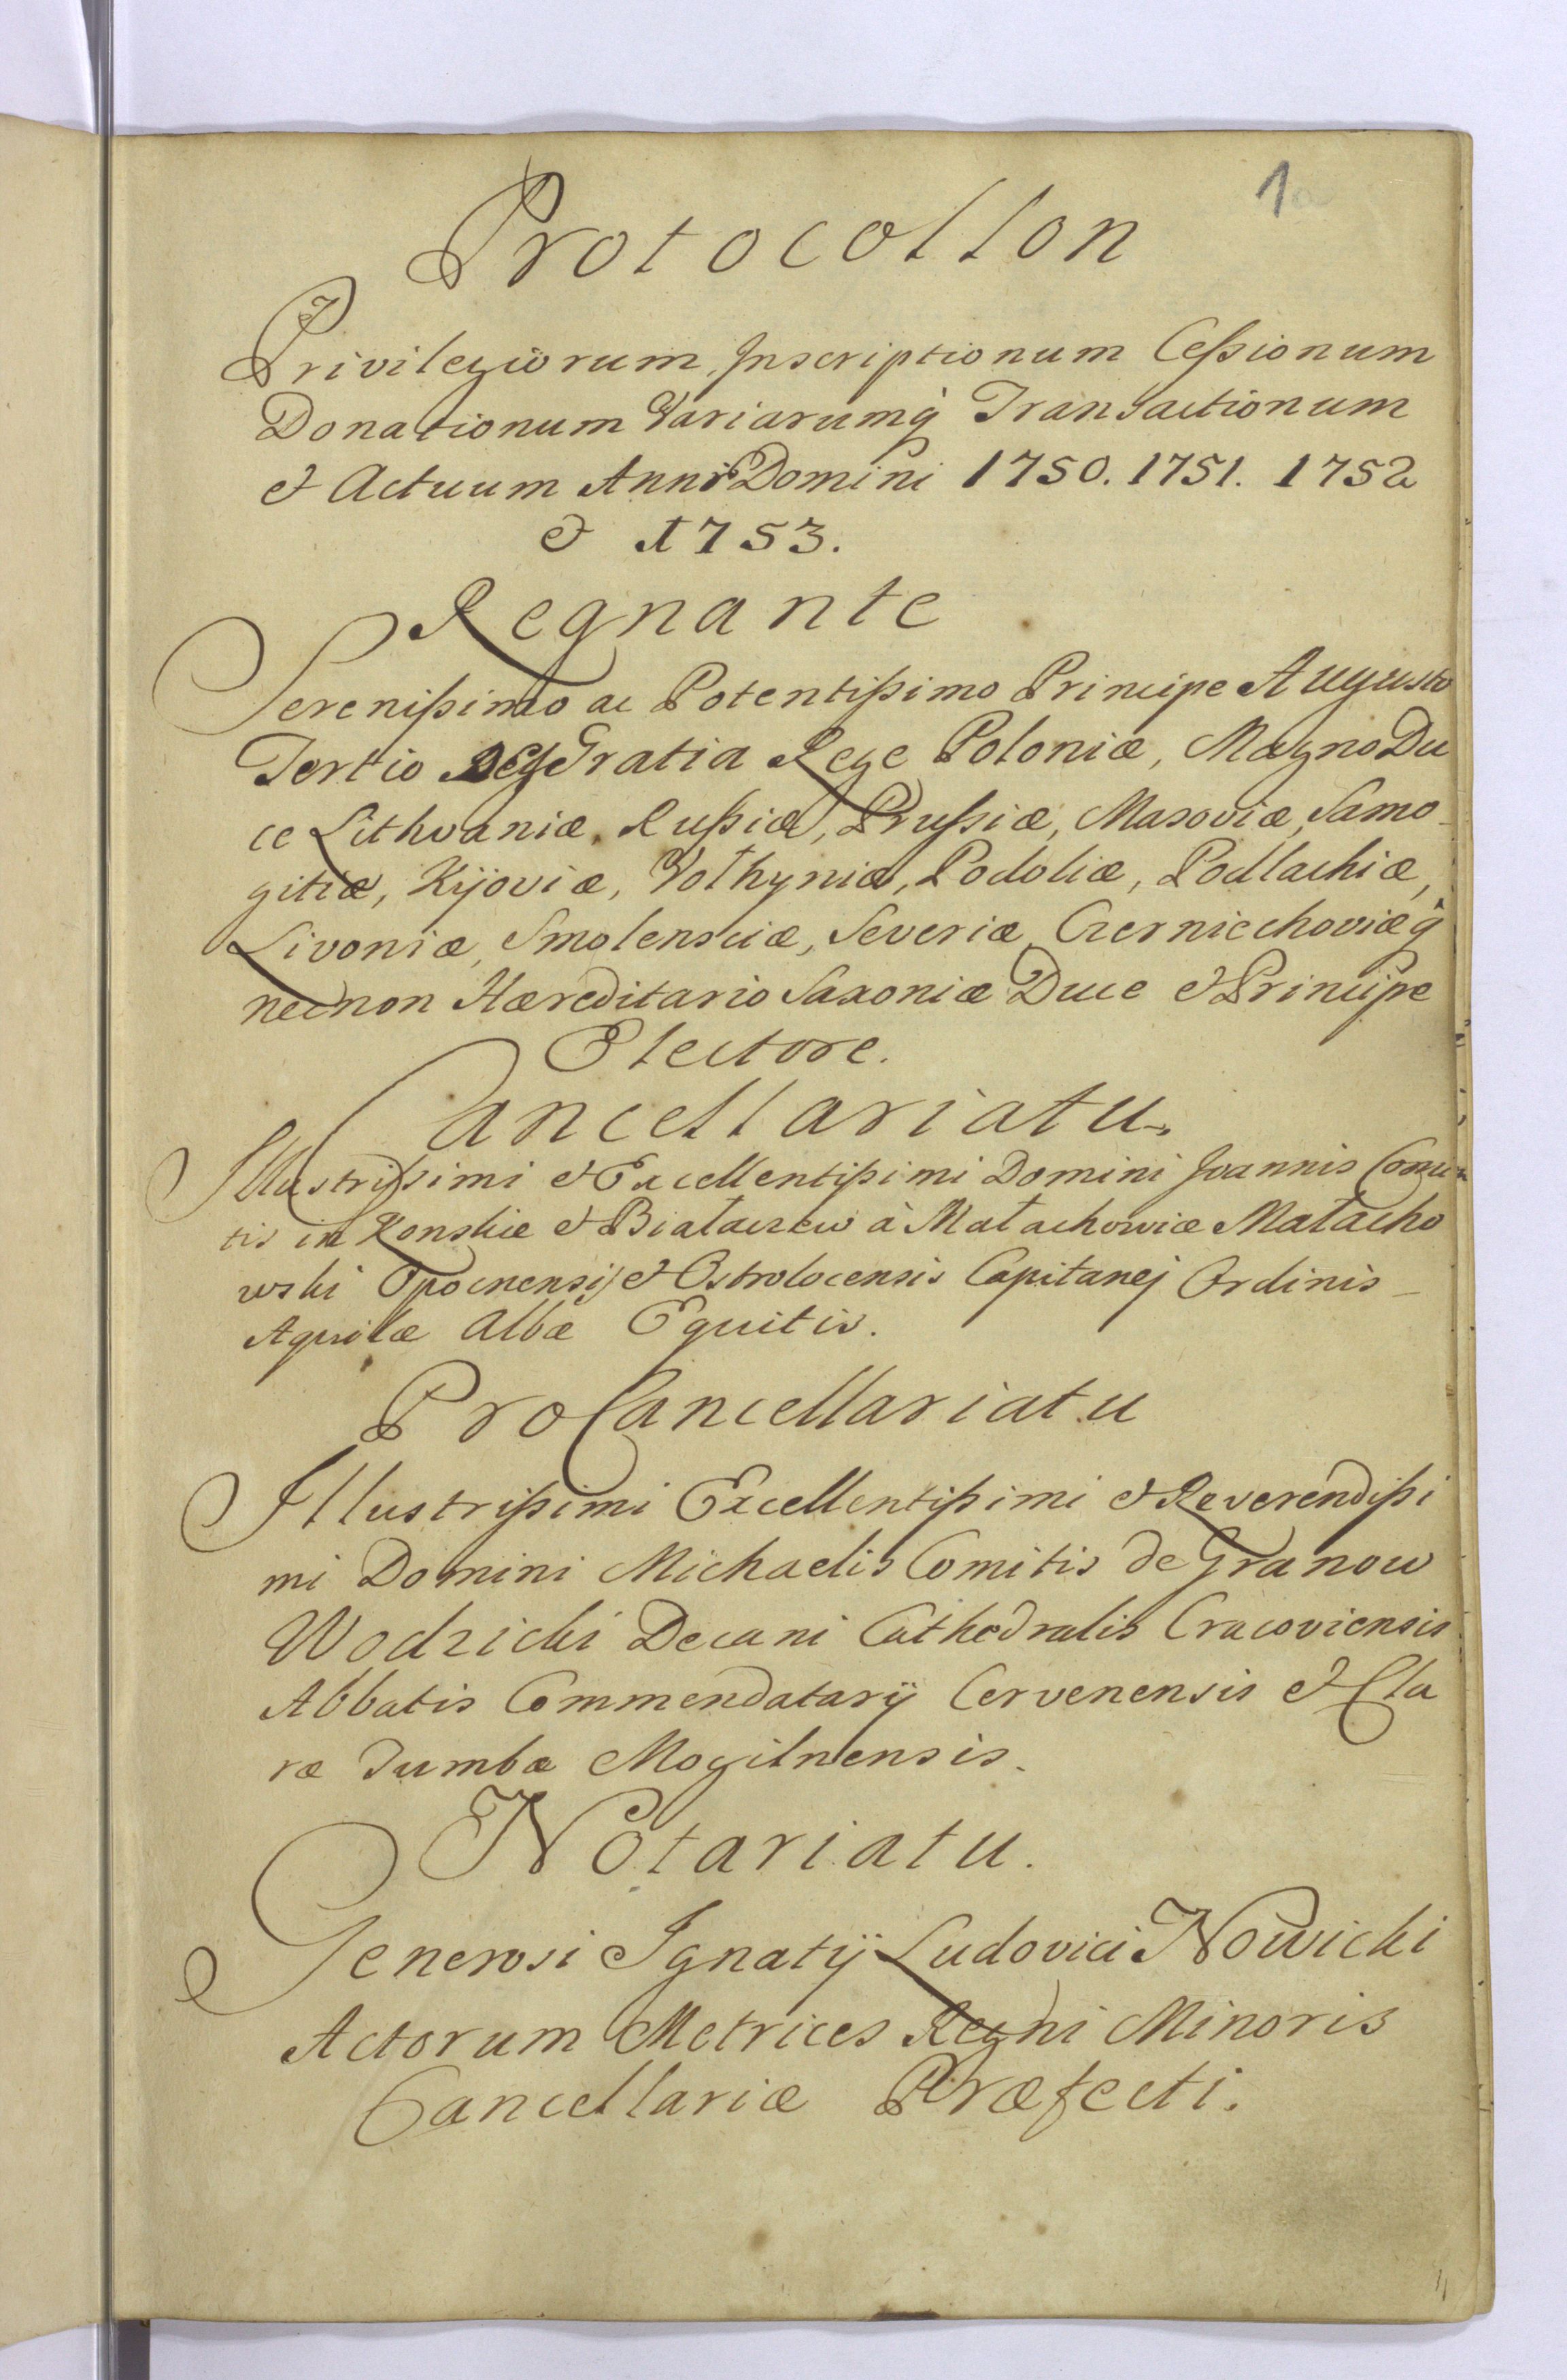 1
Protocollon
Privilegiorum, Inscriptionum Ceßionum
Donationum Variarumq̀ Transactionum
et Actuum Anni Domini 1750. 1751. 1752
et 1753.
Regnante
Serenißimo ac Potentißimo Principe Augusto
Tertio Dei Gratia Rege Poloniæ, Magno Du
ce Lithvaniæ, Rußiæ, Prußiæ, Masoviæ, Samo-
gitiæ, Kijoviæ, Vołhyniæ, Podoliæ, Podlachiæ,
Livoniæ, Smolensciæ, Severiæ, Czerniechoviæq̀
necnon Hæreditario Saxoniæ Duce et Principe
Electore.
Cancellariatu
Illustrißimi et Excellentißimi Domini Joannis Comi
tis in Konskie et Białaczew à Małachowice Małacho
wski Opocnensis et Ostrolocensis Capitanej Ordinis
Aquilæ Albæ Equitis.
ProCancellariatu
Illustrißimi Excellentißimi et Reverendißi
mi Domini Michaelis Comitis de Granow
Wodzicki Decani Cathedralis Cracoviensis
Abbatis Commendatarÿ Cervenensis et Cla
ræ Tumbæ Mogilnensis.
Notariatu.
Generosi Ignatÿ Ludovici Nowicki
Actorum Metrices Regni Minoris
Cancellariæ Præfecti.